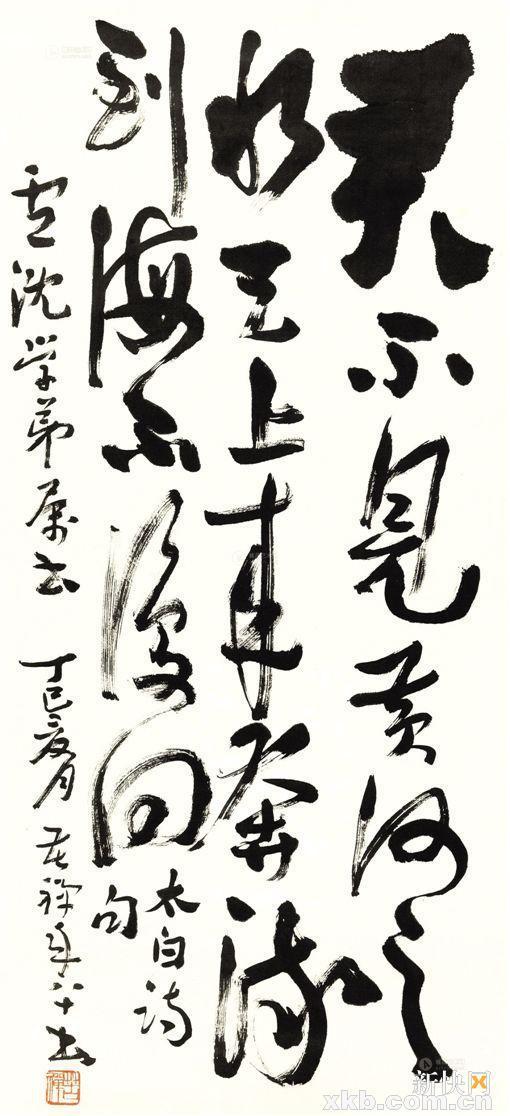 君不見黃河之
水天上來奔流
到海不復回
太白詩
句
雪沈学弟属书
丁巳夏月 苦禅年八十书
苦禅
新快网
xkb.com.cn